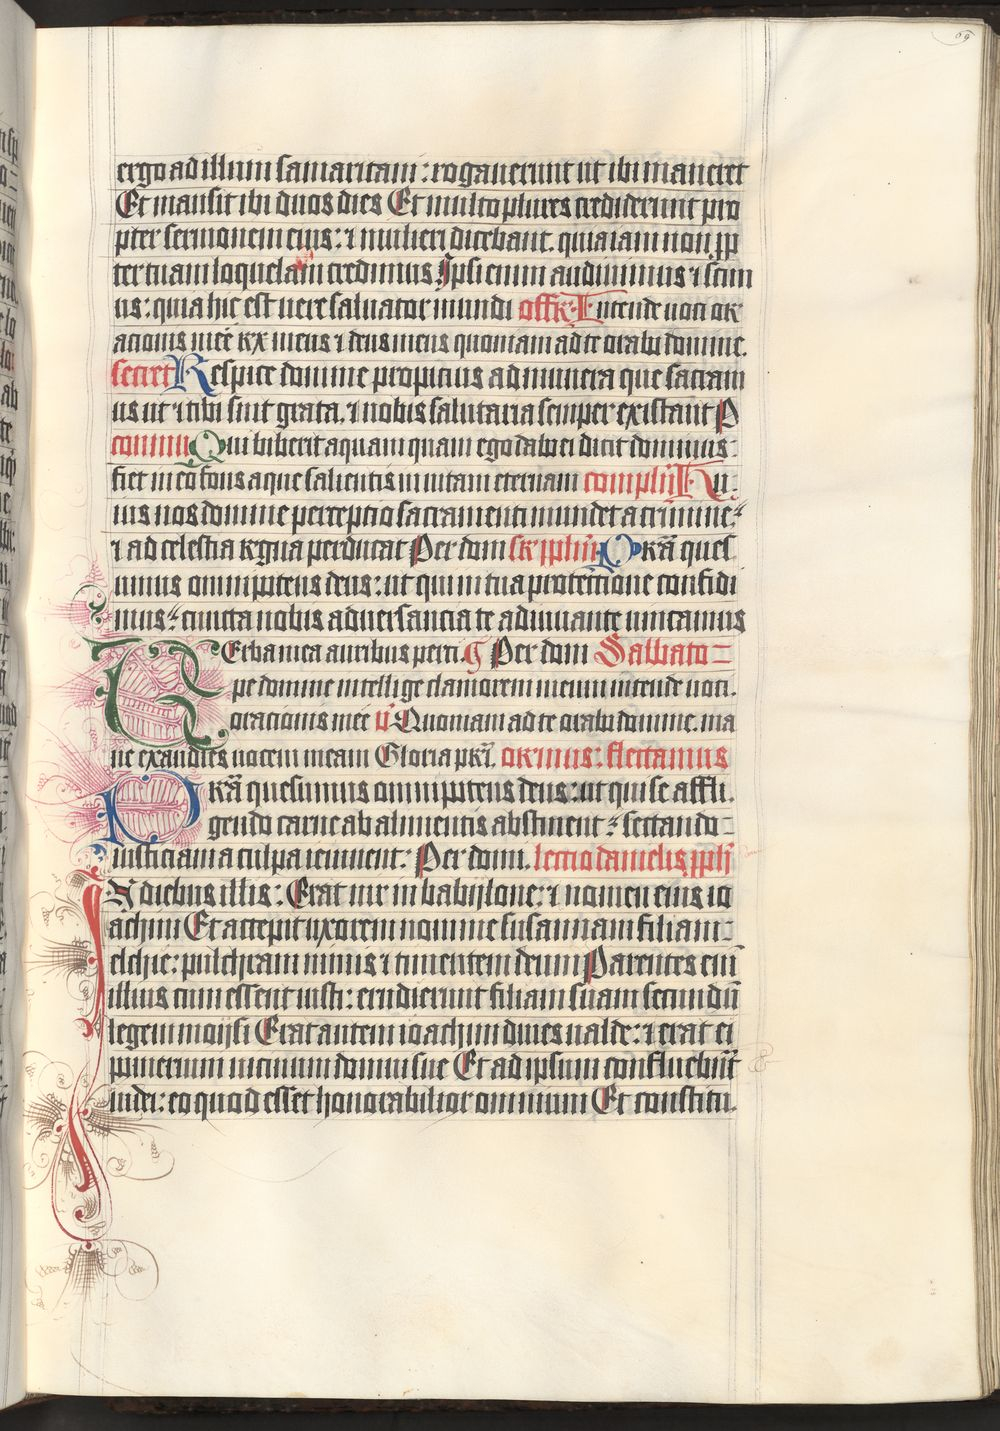 69
ergo ad illum samaritani: rogauerunt ut ibi maneret
Et mansit ibi duos dies Et multo plures crediderunt pro
pter sermonem eius: ⁊ mulieri dicebant. quia iam non ꝓp
ter tuam loquelam credimus Ipsi enim audiuimus ⁊ scim
us: quia hic est uere saluator mundi offr̄. Intende uoci or
acionis mee rex meus ⁊ deus meus quoniam ad te orabo domine.
secret Respice domine propicius ad munera que sacram
us ut ⁊ tibi sint grata. ⁊ nobis salutaria semper existant P
commu Qui biberit aquam quam ego dabo ei dicit dominus:
fiet in eo fons aque salientis in uitam eternam complen̄ Hu:
ius nos domine perceptio sacramenti mundet a crimine:
⁊ ad celestia regna perducat Per dom sr̄ pplm̄ Pr̄a ques
umus omnipotens deus: ut qui in tua protectione confidi
mus: cuncta nobis aduersancia te adiuuante uincamus
Verba mea auribus perci. Per dom Sabbato
pe domine intellige clamorem meum intende uoci.
oracionis mee v̄ Quoniam ad te orabo domine. ma
ne exaudies uocem meam Gloria pr̄i. oremus: flectamus
Pr̄a quesumus omnipotens deus: ut qui se affli.
gendo carne ab alimentis abstinent: sectando
iusticiam a culpa ieiunent: Per dom. lectio danielis ꝓph̄
In diebus illis: Erat uir in babylone: ⁊ nomen eius io
achim Et accepit uxorem nomine susannam filiam:
elchie: pulchram nimis ⁊ timentem deum Parentes eni᷉
illius cum essent iusti: erudierunt filiam suam secundu᷉
legem moysi Erat autem ioachim diues ualde: ⁊ erat ei
pomerium uicinum domui sue Et ad ipsum confluebāt
iudei: eo quod esset honorabilior omnium Et constitu.